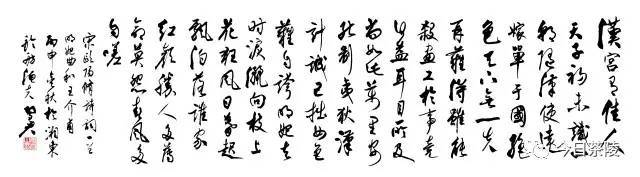 漢宮有佳人
天子初未識
一朝隨漢使遠
嫁單于國絕
色天下無一失
再難得雖能
殺畫工於事竟
何益耳目所及
尚如此萬里安
能制夷狄漢
計誠已拙女色
難自誇明妃去
時淚灑向枝上
花狂風日暮起
飄泊落誰家
紅顏勝人多薄
命莫怨春風當
自嗟
宋歐陽修詩詞一首
明妃曲和王介甫
丙申秋於湘東
今日茶陵